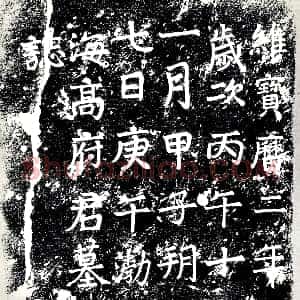 維寶曆二年
歲次丙午十
一月甲子朔
七日庚午渤
海高府君墓
誌